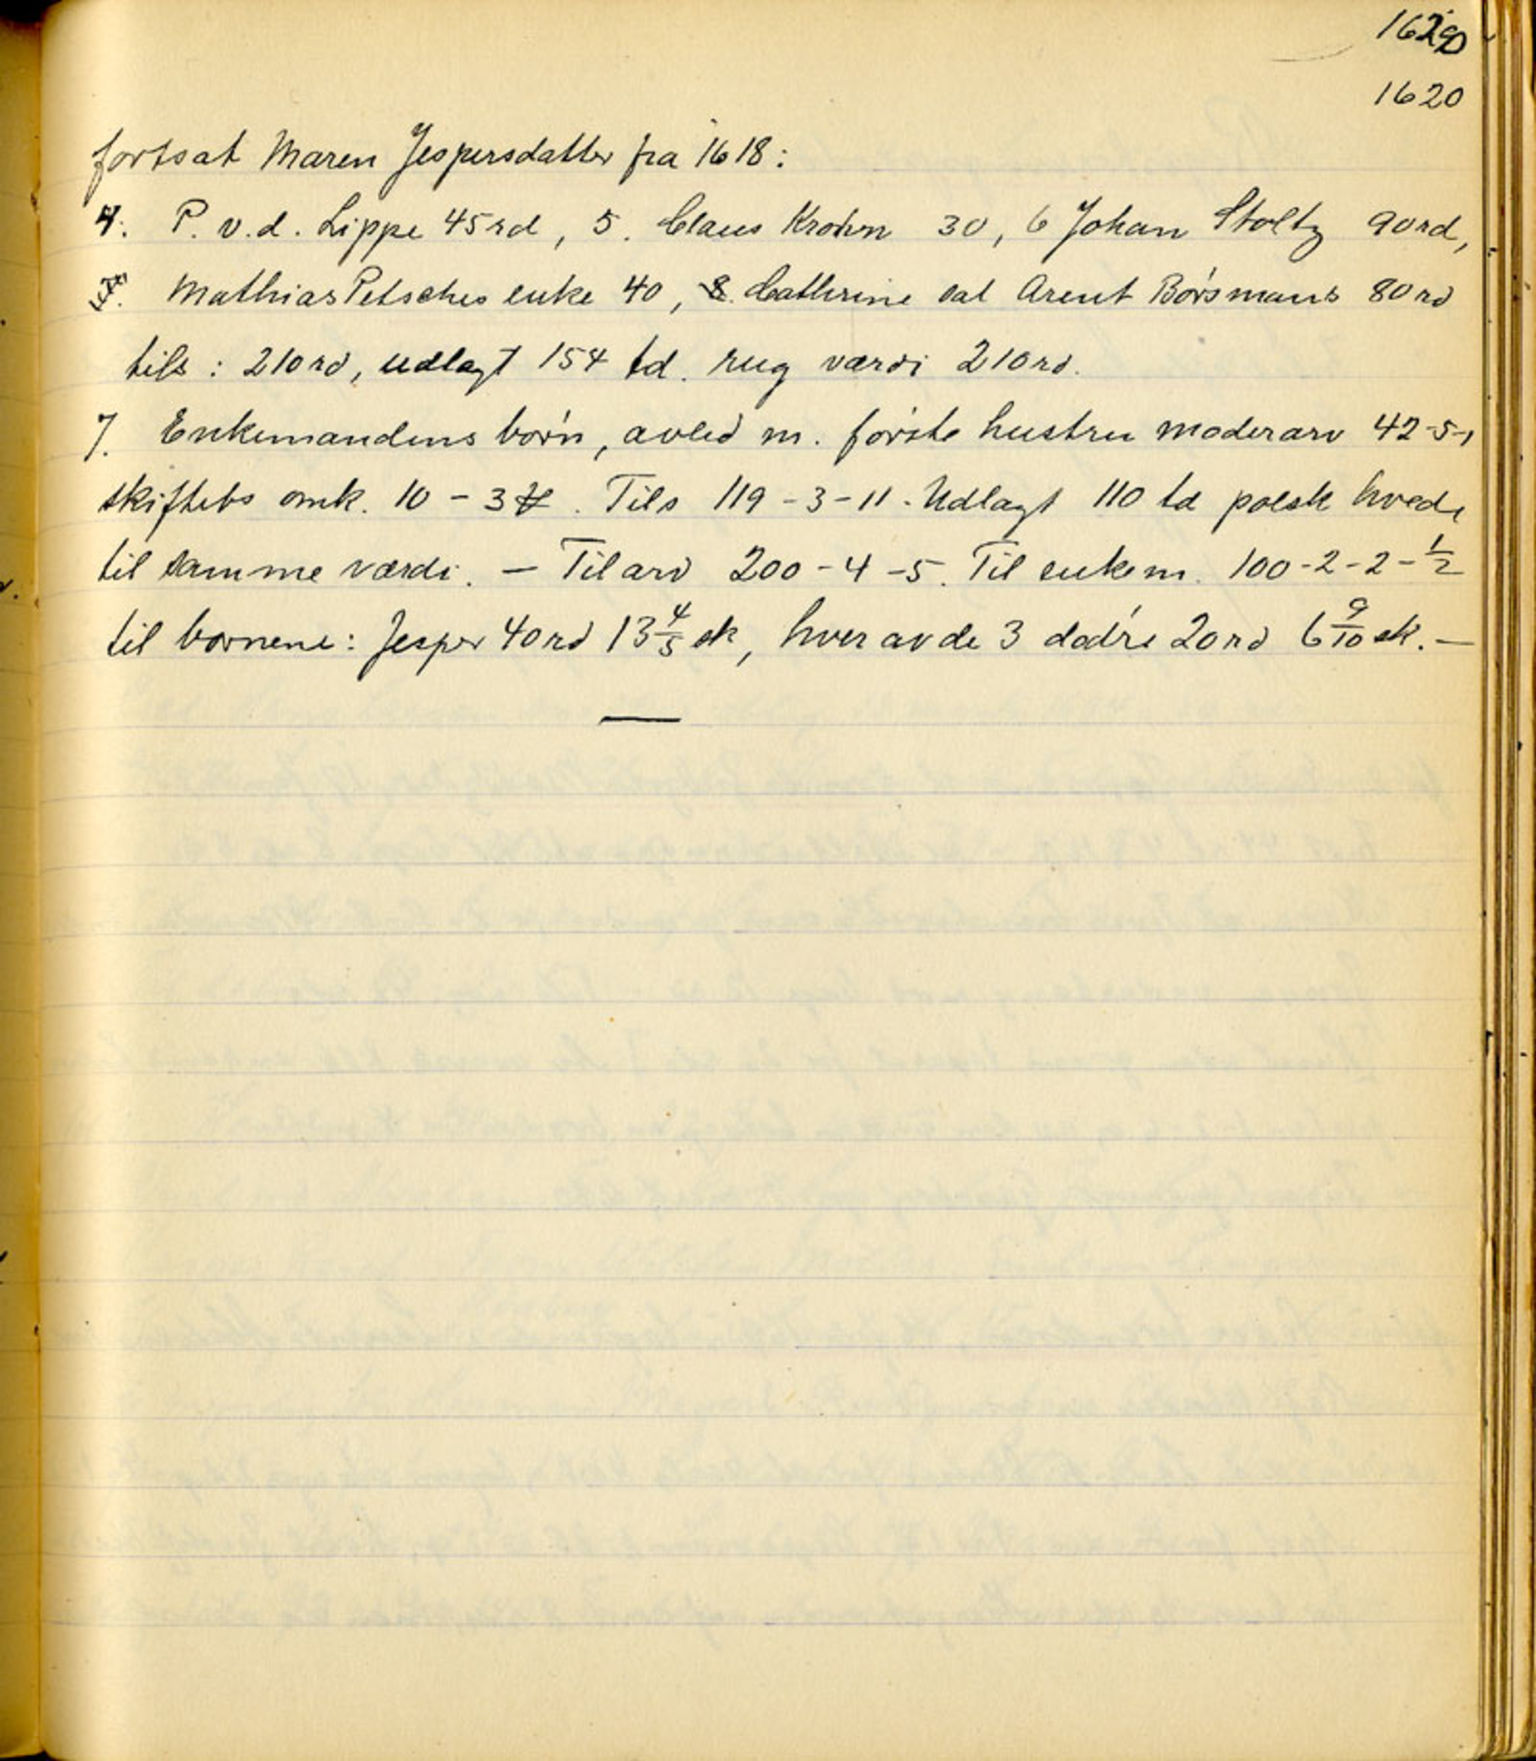 1620
fortsat Maren Jespersdatter fra 1618:
4. P. v.d. Lippe 45rd, 5. Claus Krohn 30, 6 Johan Stoltz 90rd,
Mathias Petsches enke 40, 8. Cathrine sal Arent Börsmans 80rd
tils: 210rd, udlagt 154 td. rug værdi 210rd.
7. Enkemandens börn, avled m. förste hustru moderarv 42-5-1
skiftets omk. 10 - 3 . Tils 119 - 3 - 11. Udlagt 110 td polsk hvede
til samme værdi. — Til arv 200 - 4 - 5. Til enkem. 100 - 2 - 2 - 1/2
til bornene: Jesper 40rd 13 4/5 sk, hver av de 3 dödre 20rd 6 9/10 sk. —